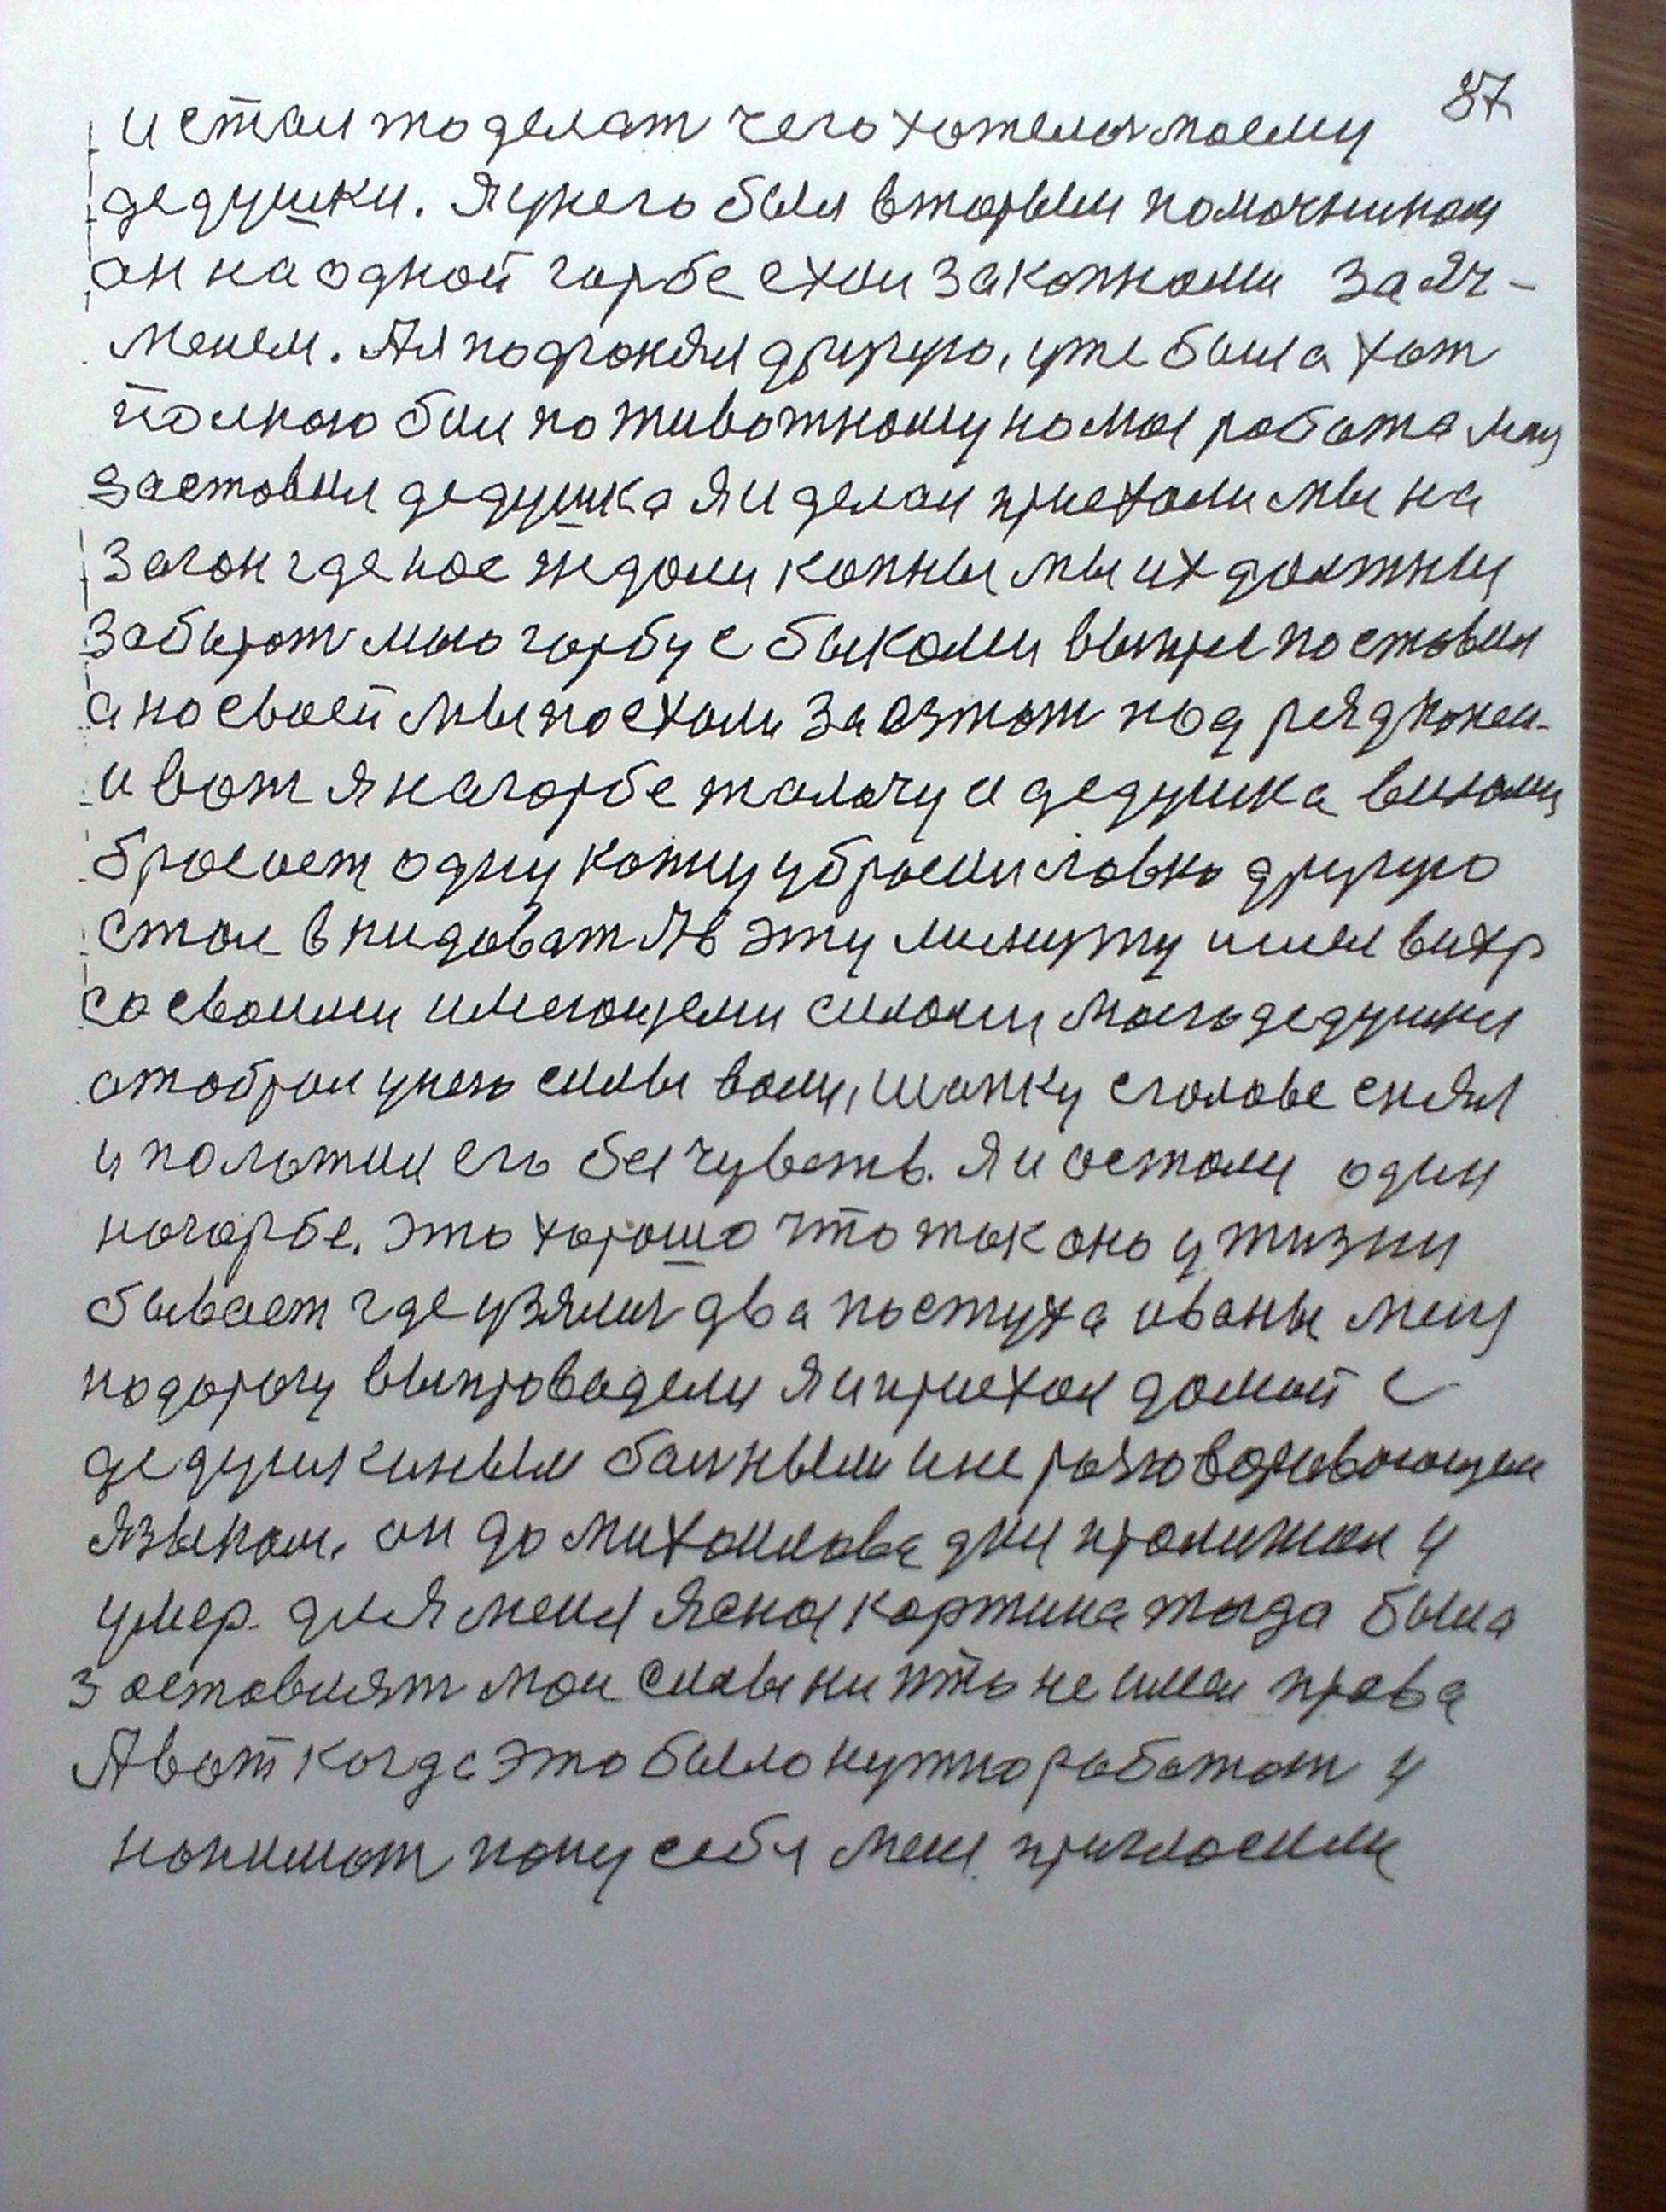 87
и стал то делат чего хотелся моему
дедушки. Я унего был вторым помочником
он на одной гарбе ехал закопнами за яч-
менем. Ая подгонял другую, уже была хот
полною бил по животному но моя работа
заставил дедушка я и делал приехали мы на
загон где нас ждали копны мы их должны
забырат мыю гарбу с быками выпряг поставил
а на своей мы поехали за взятот под ряд
и вот я на гарбе талочу а дедушка вилами
бросает одну копну убрали ловко другую
стал внидоват Ав эту минуту шел вихр
со своими имеющеми силами, моего дедушки
отобрал унего силы воли, шапку с голове снял
и положил его без чувств. Я и осталя один
нагарбе. это хорошо что так оно у жизни
бывает где узялися два пастуха иваны меня
надорогу выпроводели я и приехал домой с
дедушкиным балным и не разговоривоющем
языком. он до михаилова дня пролижал и
умер. для меня ясноя картина тогда была
заставлят мои силы ни кто не имел права
А вот когда это было нужно работат и
на меня пригласили